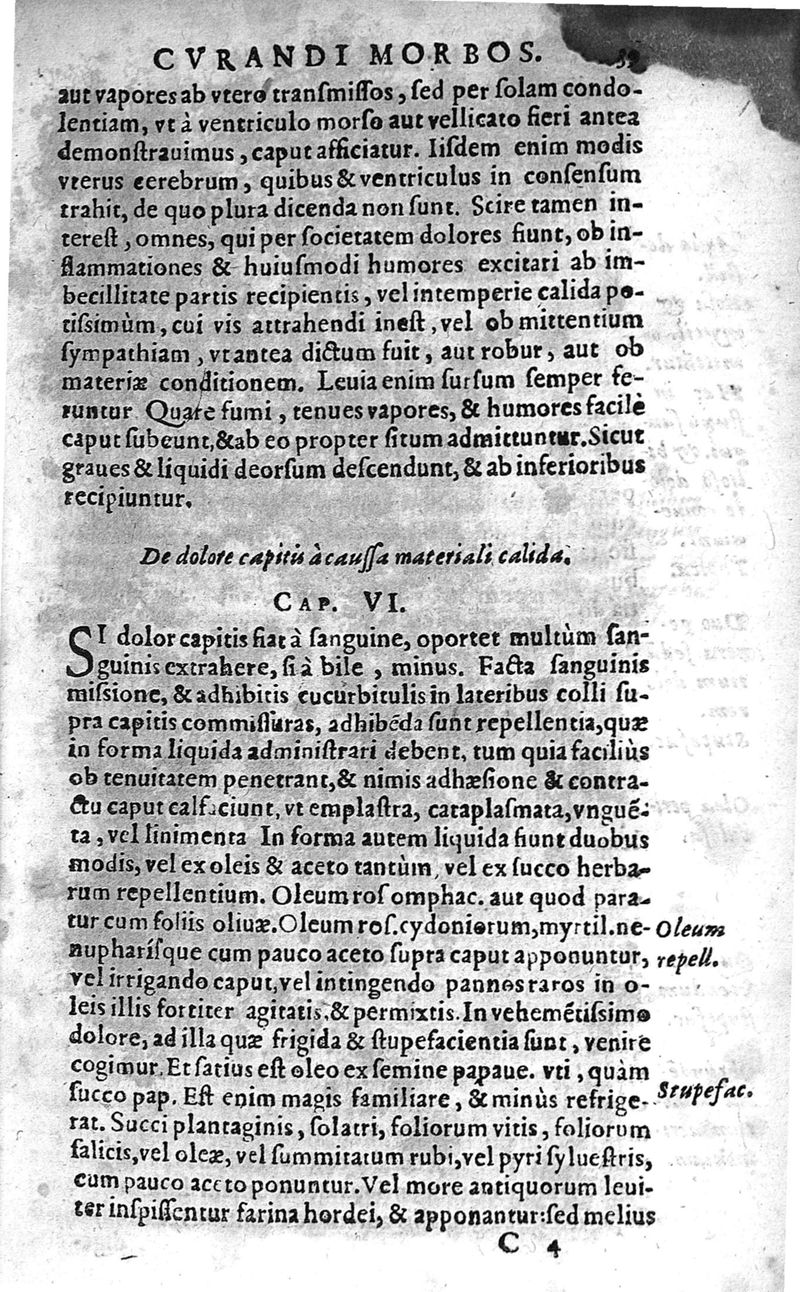 CVRANDI MORBOS. 39
aut vapores ab vtero transmissos, sed per solam condo-
lentiam, vt à ventriculo morso aut vellicato fieri antea
demonstrauimus, caput afficiatur. Iisdem enim modis
vterus cerebrum, quibus & ventriculus in consensum
trahit, de quo plura dicenda non sunt. Scire tamen in-
terest, omnes, qui per societatem dolores fiunt, ob in-
flammationes & huiusmodi humores excitari ab im-
becillitate partis recipientis, vel intemperie calida po-
tissimùm, cui vis attrahendi inest, vel ob mittentium
sympathiam, vt antea dictum fuit, aut robur, aut ob
materiæ conditionem. Leuia enim sursum semper fe-
runtur Quare fumi, tenues vapores, & humores facilè
caput subeunt, & ab eo propter situm admittuntur. Sicut
graues & liquidi deorsum descendunt, & ab inferioribus
recipiuntur.
De dolore capitis à caussa materiali calida.
CAP. VI.
SI dolor capitis fiat à sanguine, oportet multùm san-
guinis extrahere, si à bile, minus. Facta sanguinis
missione, & adhibitis cucurbitulis in lateribus colli su-
pra capitis commissuras, adhibēda sunt repellentia, quæ
in forma liquida administrari debent, tum quia faciliùs
ob tenuitatem penetrant, & nimis adhæsione & contra-
ctu caput calfaciunt, vt emplastra, cataplasmata, vnguē-
ta, vel linimenta In forma autem liquida fiunt duobus
modis, vel ex oleis & aceto tantùm, vel ex succo herba-
rum repellentium. Oleum ros omphac. aut quod para-
tur cum foliis oliuæ. Oleum ros. cydoniorum, myrtil. ne-
Oleum
nupharísque cum pauco aceto supra caput apponuntur,
repell.
vel irrigando caput, vel intingendo pannos raros in o-
leis illis fortiter agitatis, & permixtis. In vehemētissimo
dolore, ad illa quæ frigida & stupefacientia sunt, venire
cogimur. Et satius est oleo ex semine papaue. vti, quàm
succo pap. Est enim magis familiare, & minùs refrige-
Stupefac.
rat. Succi plantaginis, solatri, foliorum vitis, foliorum
salicis, vel oleæ, vel summitatum rubi, vel pyri syluestris,
cum pauco aceto ponuntur. Vel more antiquorum leui-
ter inspissentur farina hordei, & apponantur: sed melius
C 4